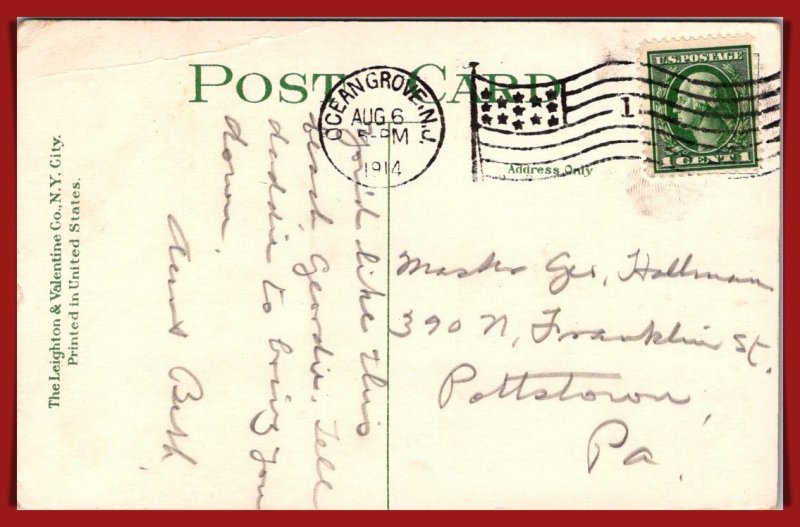 POST CARD
The Leighton & Valentine Co., N.Y. City.
Printed in United States.
OCEAN GROVE, N.J.
AUG 6
5-PM
1914
1
U.S. POSTAGE
1 CENT 1
Address Only
You'd like this
beach Geordie. Tell
daddie to bring you
down.
Aunt Beth
Master Geo. Hollman
390 N. Franklin St.
Pottstown,
Pa.